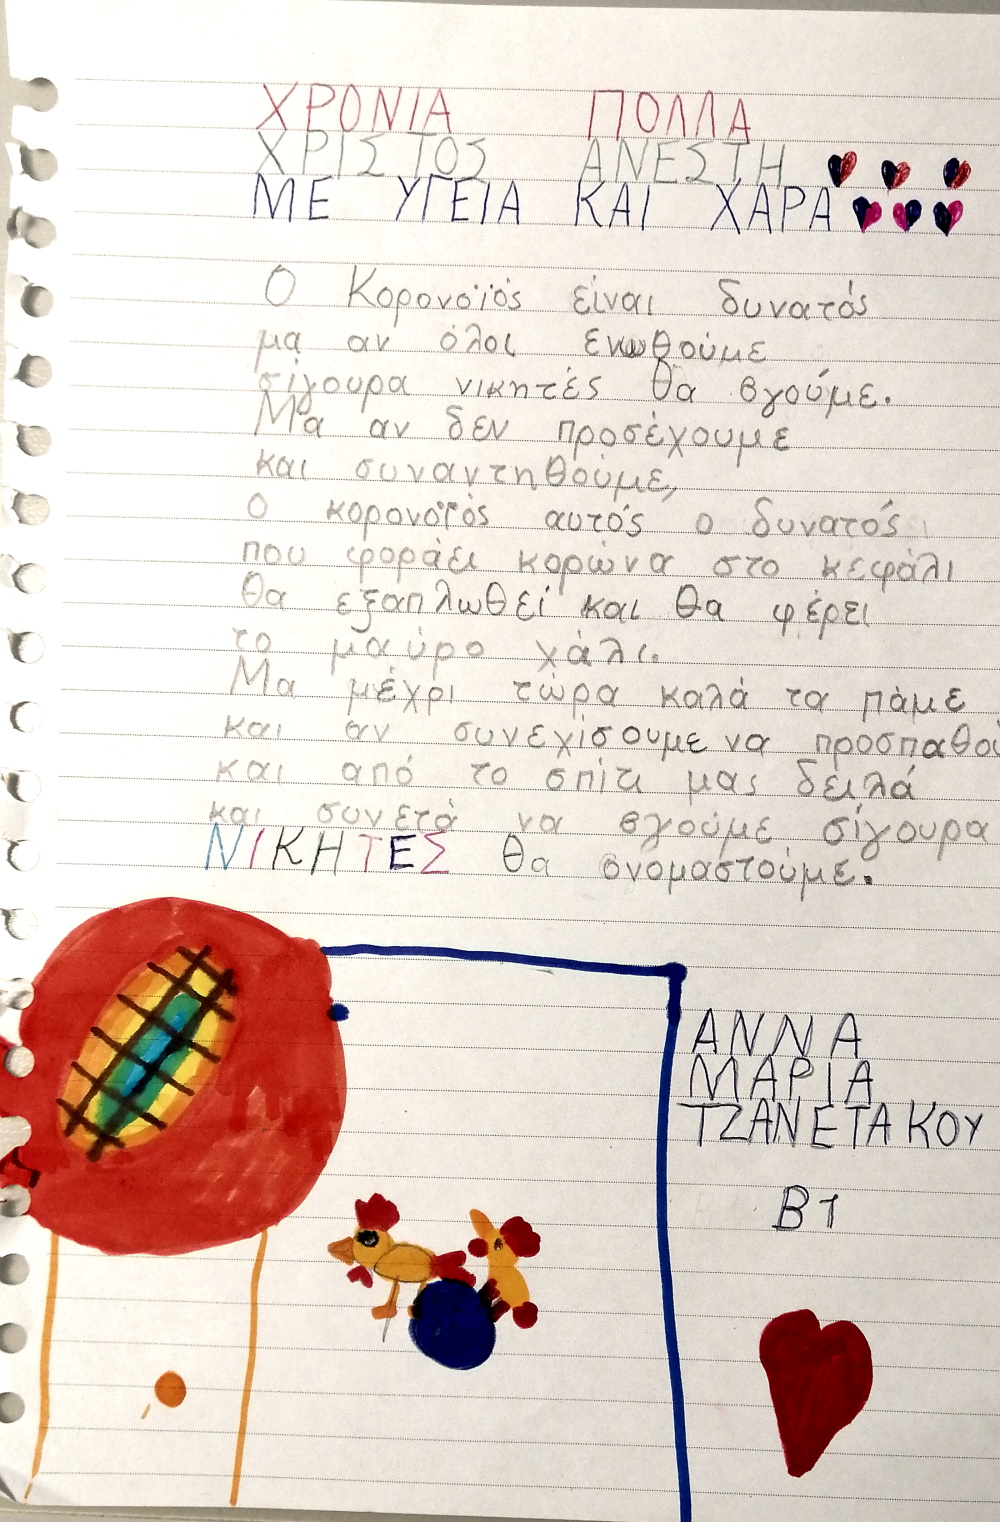 ΧΡΟΝΙΑ ΠΟΛΛΑ
ΧΡΙΣΤΟΣ ΑΝΕΣΤΗ
ΜΕ ΥΓΕΙΑ ΚΑΙ ΧΑΡΑ
Ο Κορονοϊός είναι δυνατός
μα αν όλοι ενωθούμε
σίγουρα νικητές θα βγούμε.
Μα αν δεν προσέχουμε
και συναντηθούμε,
ο κορονοϊός αυτός ο δυνατός
που φοράει κορώνα στο κεφάλι
θα εξαπλωθεί και θα φέρει
το μαύρο χάλι.
Μα μέχρι τώρα καλά τα πάμε
και αν συνεχίσουμε να προσπαθού
και από το σπίτι μας δειλά
και συνετά να βγούμε σίγουρα
ΝΙΚΗΤΕΣ θα ονομαστούμε.
ΑΝΝΑ
ΜΑΡΙΑ
ΤΖΑΝΕΤΑΚΟΥ
Β1